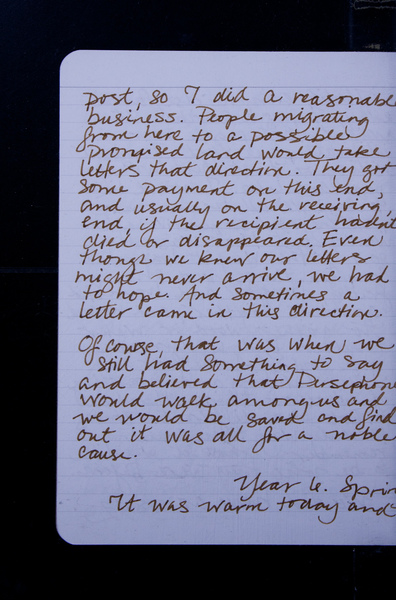 post, so I did a reasonable
business. People migrating
from here to a possible
promised land would take
letters that direction. They got
some payment on this end,
and usually on the receiving
end, if the recipient hadn't
died or disappeared. Even
though we knew our letters
might never arrive, we had
to hope. And sometimes a
letter came in this direction.
Of course, that was when we
still had something to say
and believed that Persephone
would walk among us and
we would be saved and find
out it was all for a noble
cause.
Year 6. Sprin
"It was warm today and